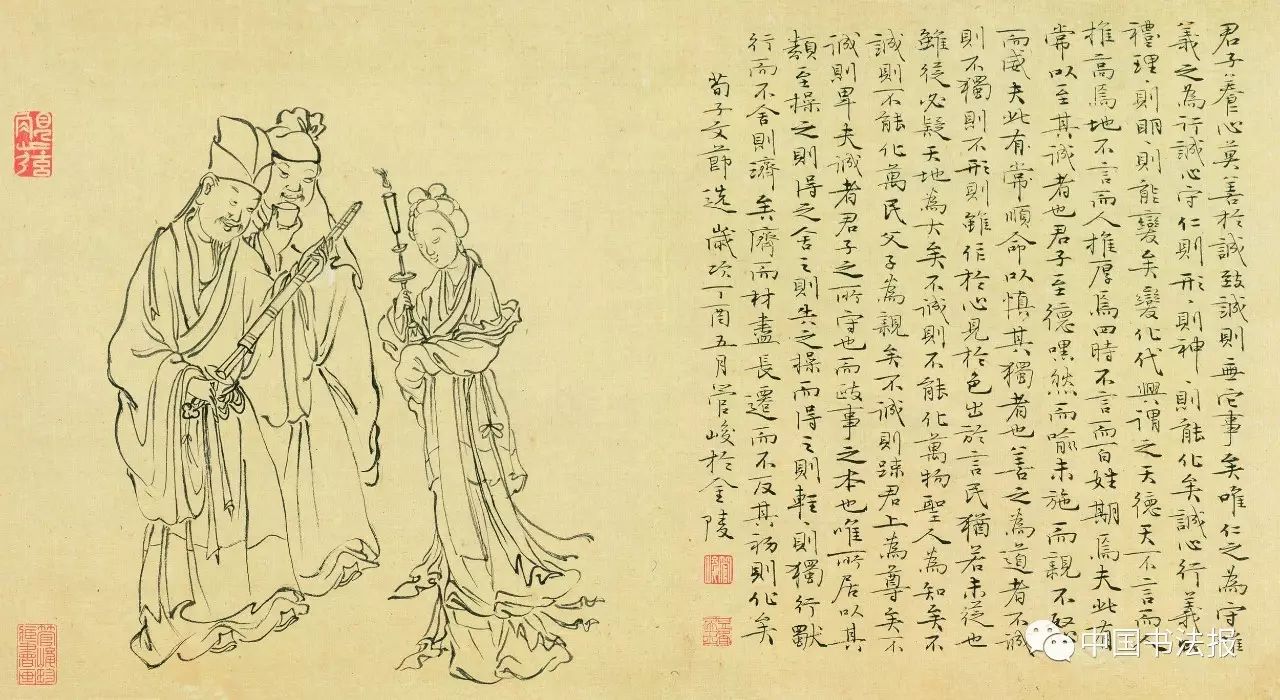 君子養心莫善於誠致誠則無它事矣唯仁之為守唯
義之為行誠心守仁則形〻則神〻則能化矣誠心行義則
禮理〻則明〻則能變矣變化代興謂之天德天不言而
推高焉地不言而人推厚焉四時不言而百姓期焉夫此有
常以至其誠者也君子至德嘿然而喻未施而親不怒
而威夫此有常順命以慎其獨者也善之為道者不誠
則不獨〻則不形則雖作於心見於色出於言民猶若未從也
雖從必疑天地為大矣不誠則不能化萬物聖人為知矣不
誠則不能化萬民父子為親矣不誠則疎君上為尊矣不
誠則卑夫誠者君子之所守也而政事之本也唯所居以其
類至操之則得之舍之則失之操而得之則輕〻則獨行獸
行而不舍則濟矣濟而材盡長遷而不反其初則化矣
荀子文節選歲次丁酉五月管峻於金陵
中国书法报